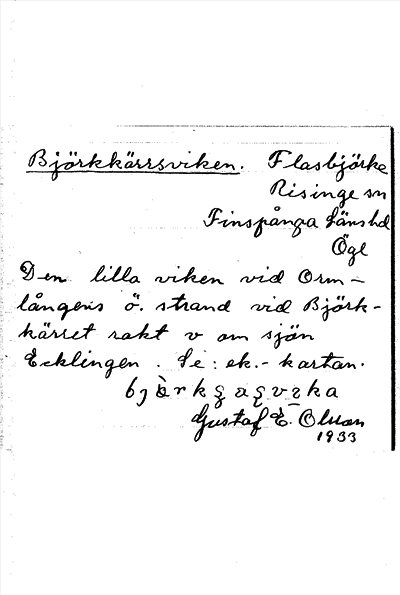 Björkkärrsviken. Flasbjörke
Risinge sn
Finspånga länshd
Ögl
Den lilla viken vid Orm-
långens ö. strand vid Björk-
kärret rakt v om sjön
Ecklingen. Se: ek.-kartan.
Gustaf E. Olsson
1933